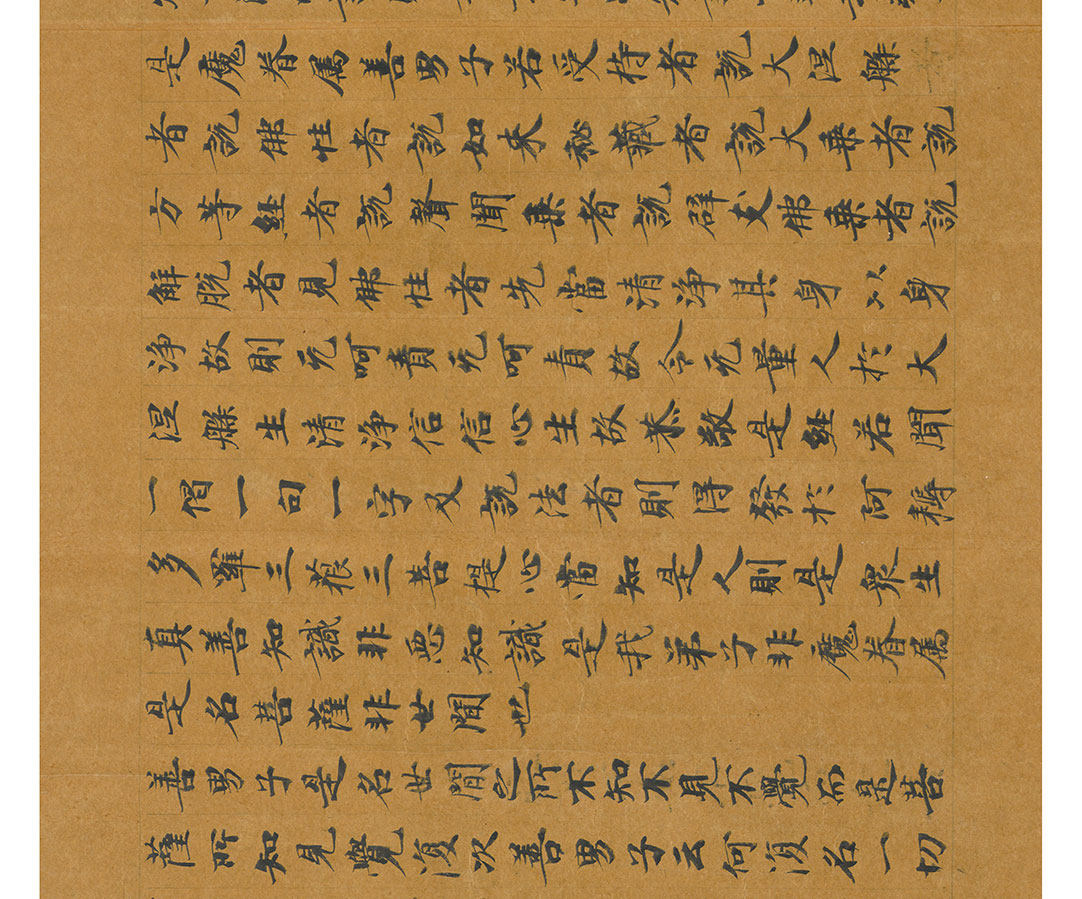 是魔眷属善男子若受持者說大涅槃
者說佛性者說如来秘藏者說大乗者說
方等經者說聲聞乗者說辟支佛乗者說
解脫者見佛性者先當清淨其身以身
淨故則无呵責无呵責故令无量人於大
涅槃生清淨信信心生故恭敬是經若聞
一偈一句一字及說法者則得發於阿耨
多羅三藐三菩提心當知是人則是衆生
真善知識非悪知識是我弟子非魔眷属
是名菩薩非世間也
善男子是名世間之所不知不見不覺而是菩
薩所知見覺復次善男子云何復名一切